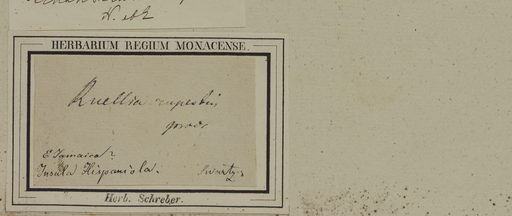 N. et
HERBARIUM REGIUM MONACENSE.
Ruellia rupestris
prod.
E Jamaica?
Insula Hispaniola. Swartz.
Herb. Schreber.